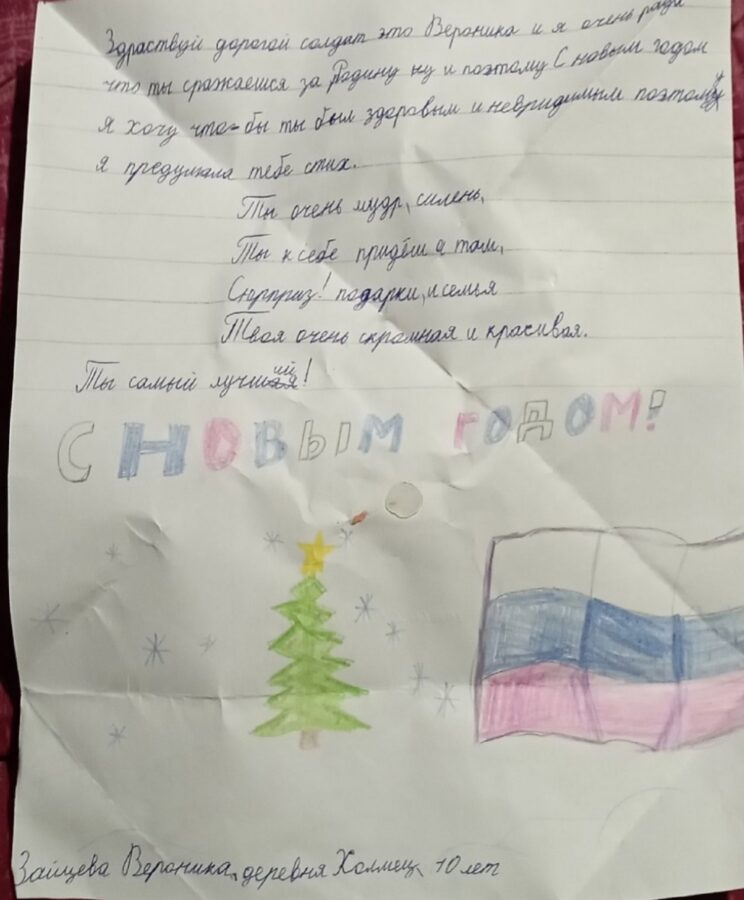 Здраствуй дорогой солдат это Вероника и я очень рада
что ты сражаешся за Родину ну и поэтому С новым годом
я хочу что-бы ты был здоровым и невридимым поэтому
я предумала тебе стих.
Ты очень мудр, силень,
Ты к себе придёш а там,
Сюрприз! подарки, и семья
Твоя очень скромная и красивая.
Ты самый лучший!
С НОВЫМ ГОДОМ!
Зайцева Вероника, деревня Холмец, 10 лет